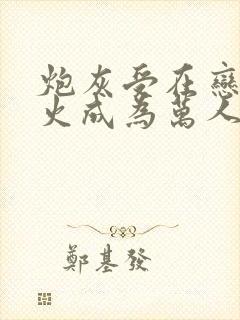 炮灰受在戀
火成為萬人
鄭基發